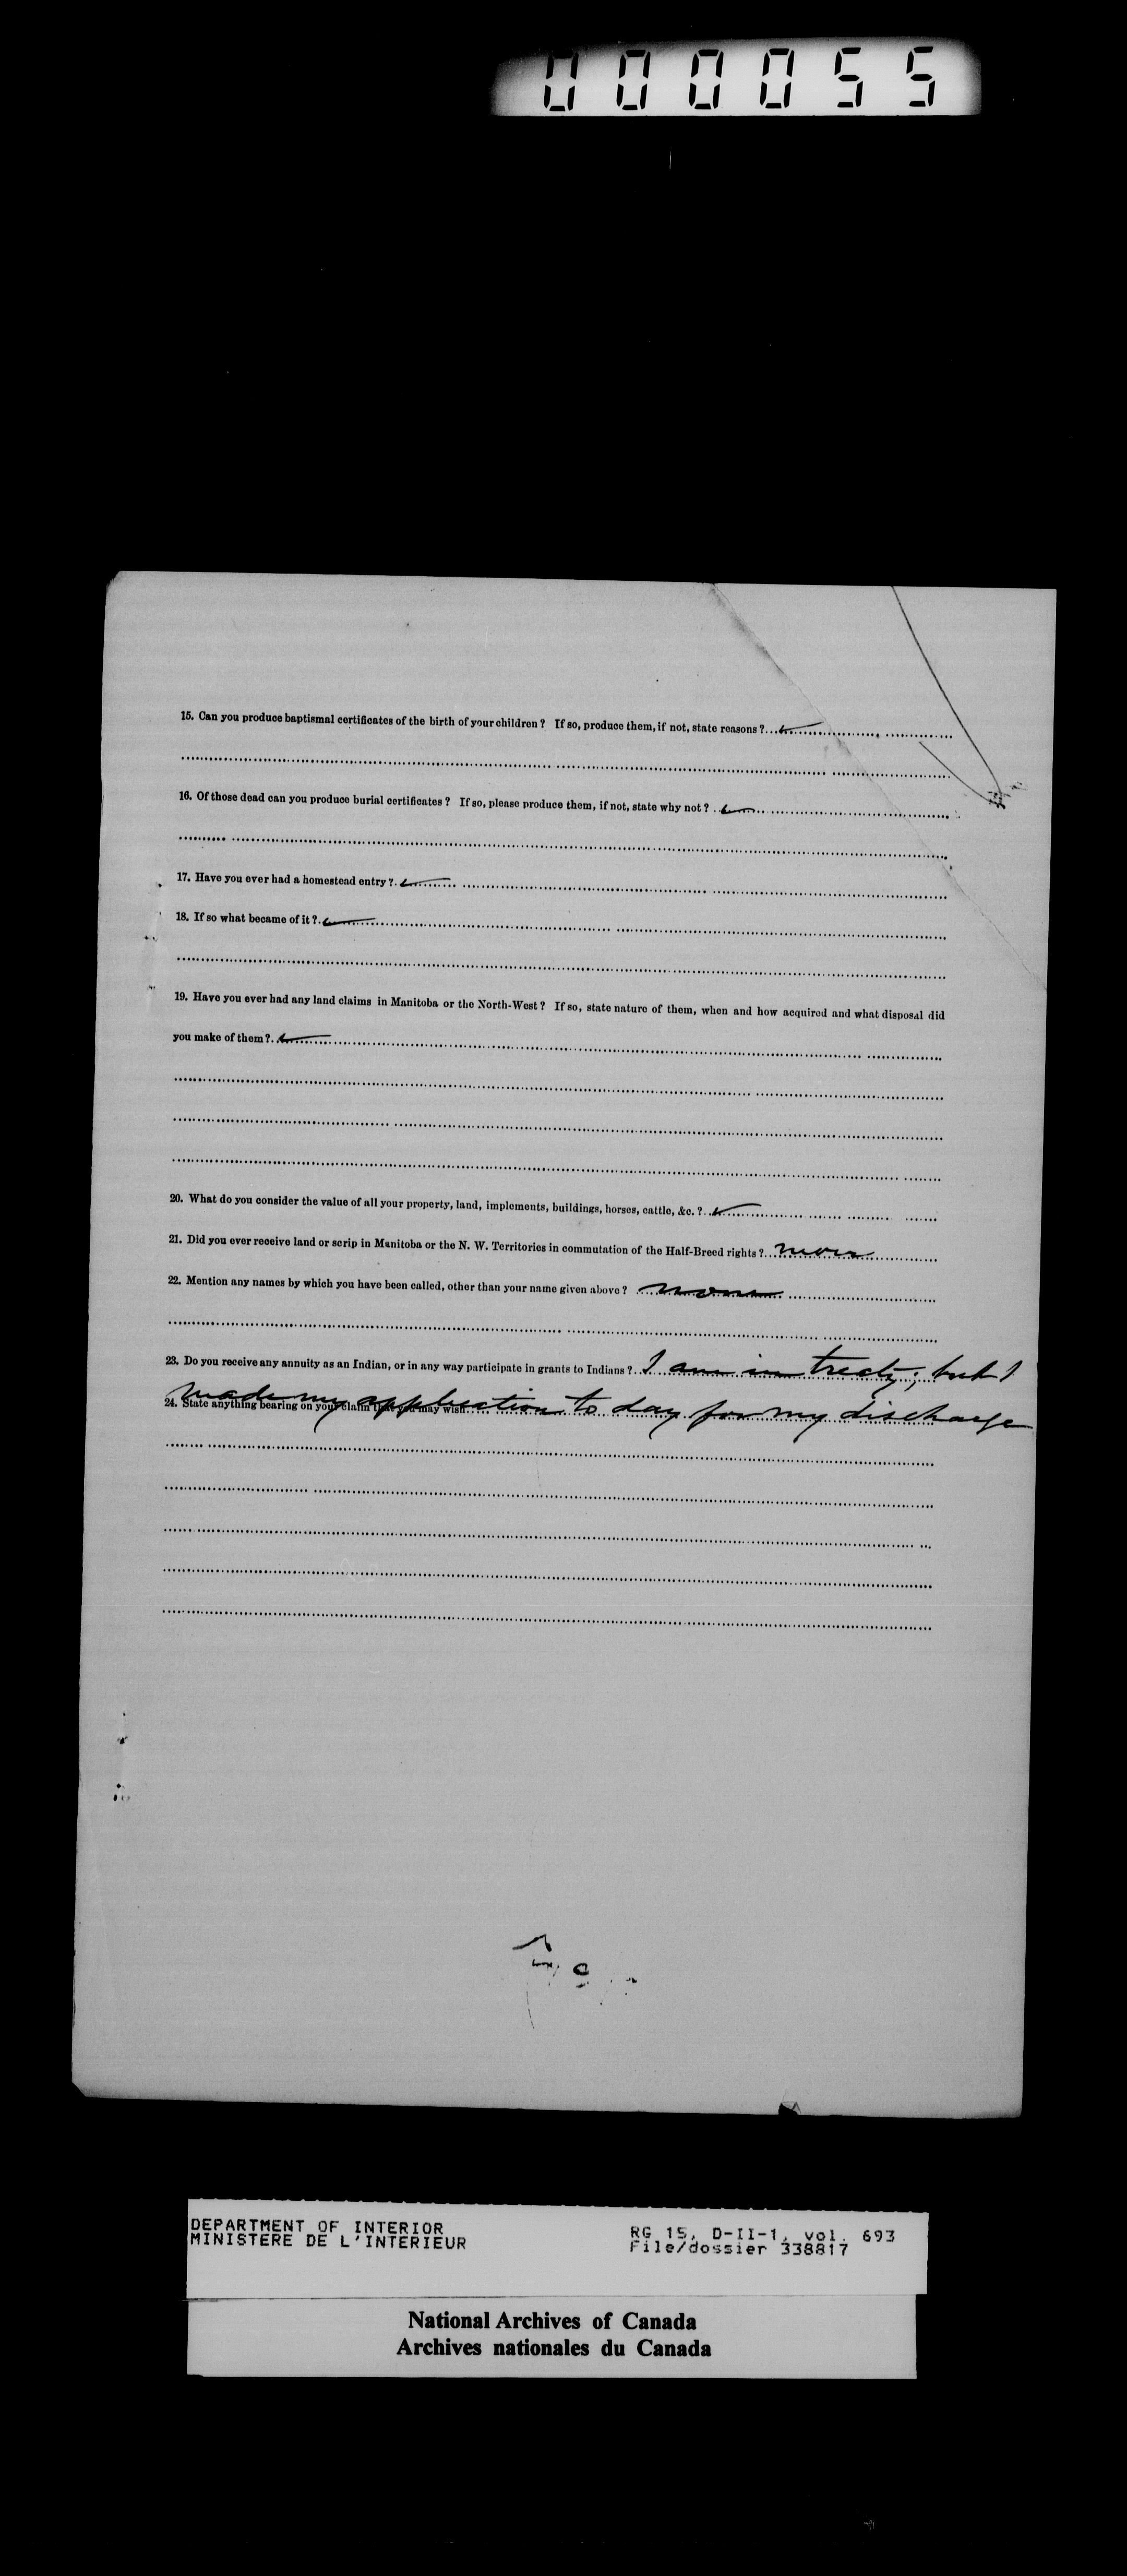 000055
15. Can you produce baptismal certificates of the birth of your children ? If so, produce them, if not, state reasons ?
16. Of those dead can you produce burial certificates ? If so, please produce them, if not, state why not ?
17. Have you ever had a homestead entry ?
18. If so what became of it ?
19. Have you ever had any land claims in Manitoba or the North-West ? If so, state nature of them, when and how acquired and what disposal did
you make of them ?
20. What do you consider the value of all your property, land, implements, buildings, horses, cattle, &c. ?
21. Did you ever receive land or scrip in Manitoba or the N. W. Territories in commutation of the Half-Breed rights ? none
22. Mention any names by which you have been called, other than your name given above ? none
23. Do you receive any annuity as an Indian, or in any way participate in grants to Indians ? I am in treaty; but I
made my application to day for my discharge
24. State anything bearing on your claim that you may wish
DEPARTMENT OF INTERIOR RG 15, D-II-1, vol. 693
MINISTERE DE L'INTERIEUR File/dossier 338817
National Archives of Canada
Archives nationales du Canada